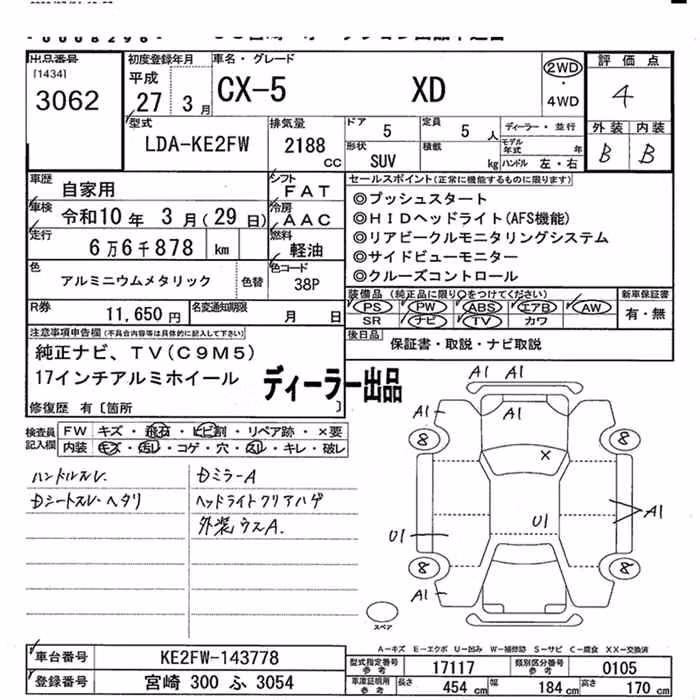 出品番号
[1434]
3062
初度登録年月
平成
27 3 月
車名・グレード
CX-5 XD
2WD
・
4WD
評価点
4
外装 内装
B B
型式
LDA-KE2FW
排気量
2188
cc
ドア 5
定員 5 人
ディーラー・並行
形状 SUV
積載 kg
モデル年式 年
ハンドル 左・右
車歴 自家用
シフト FAT
車検 令和10年 3月(29日)
冷房 AAC
走行 6万6千878 km
燃料 軽油
色 アルミニウムメタリック 色替
色コード 38P
R券 11,650 円
名変通知期限 月 日
セールスポイント(正常に機能するものに限ります)
◎プッシュスタート
◎HIDヘッドライト(AFS機能)
◎リアビークルモニタリングシステム
◎サイドビューモニター
◎クルーズコントロール
装備品(純正品に限り○をつけてください)
PS PW ABS エアB AW
SR ナビ TV カワ
新車保証書
有・無
後日品
保証書・取説・ナビ取説
注意事項申告欄(不具合内容等は具体的に記入して下さい)
純正ナビ、TV(C9M5)
17インチアルミホイール
ディーラー出品
修復歴 有〔箇所
検査員記入欄
FW キズ・飛石・ヒビ割・リペア跡・×要
内装 キズ・汚レ・コゲ・穴・スレ・キレ・破レ
ハンドルスレ
DミラーA
Dシートスレ・ヘタリ
ヘッドライトクリアハゲ
外装ウスA.
A1 A1
A1
A1
8
8
×
U1
U1
A1
8
8
A1
スペア
A-キズ E-エクボ U-凹み W-補修跡 S-サビ C-腐食 XX-交換済
車台番号 KE2FW-143778
型式指定番号 参考 17117
類別区分番号 参考 0105
登録番号 宮崎 300 ふ 3054
車庫証明用 参考 長さ 454 cm 幅 184 cm 高さ 170 cm